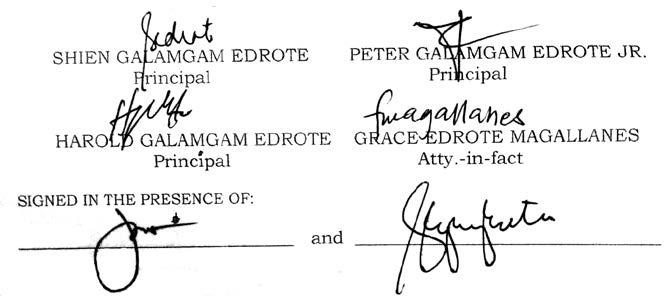 SHIEN GALAMGAM EDROTE
Principal
PETER GALAMGAM EDROTE JR.
Principal
HAROLD GALAMGAM EDROTE
Principal
fmagallanes
GRACE EDROTE MAGALLANES
Atty.-in-fact
SIGNED IN THE PRESENCE OF:
and